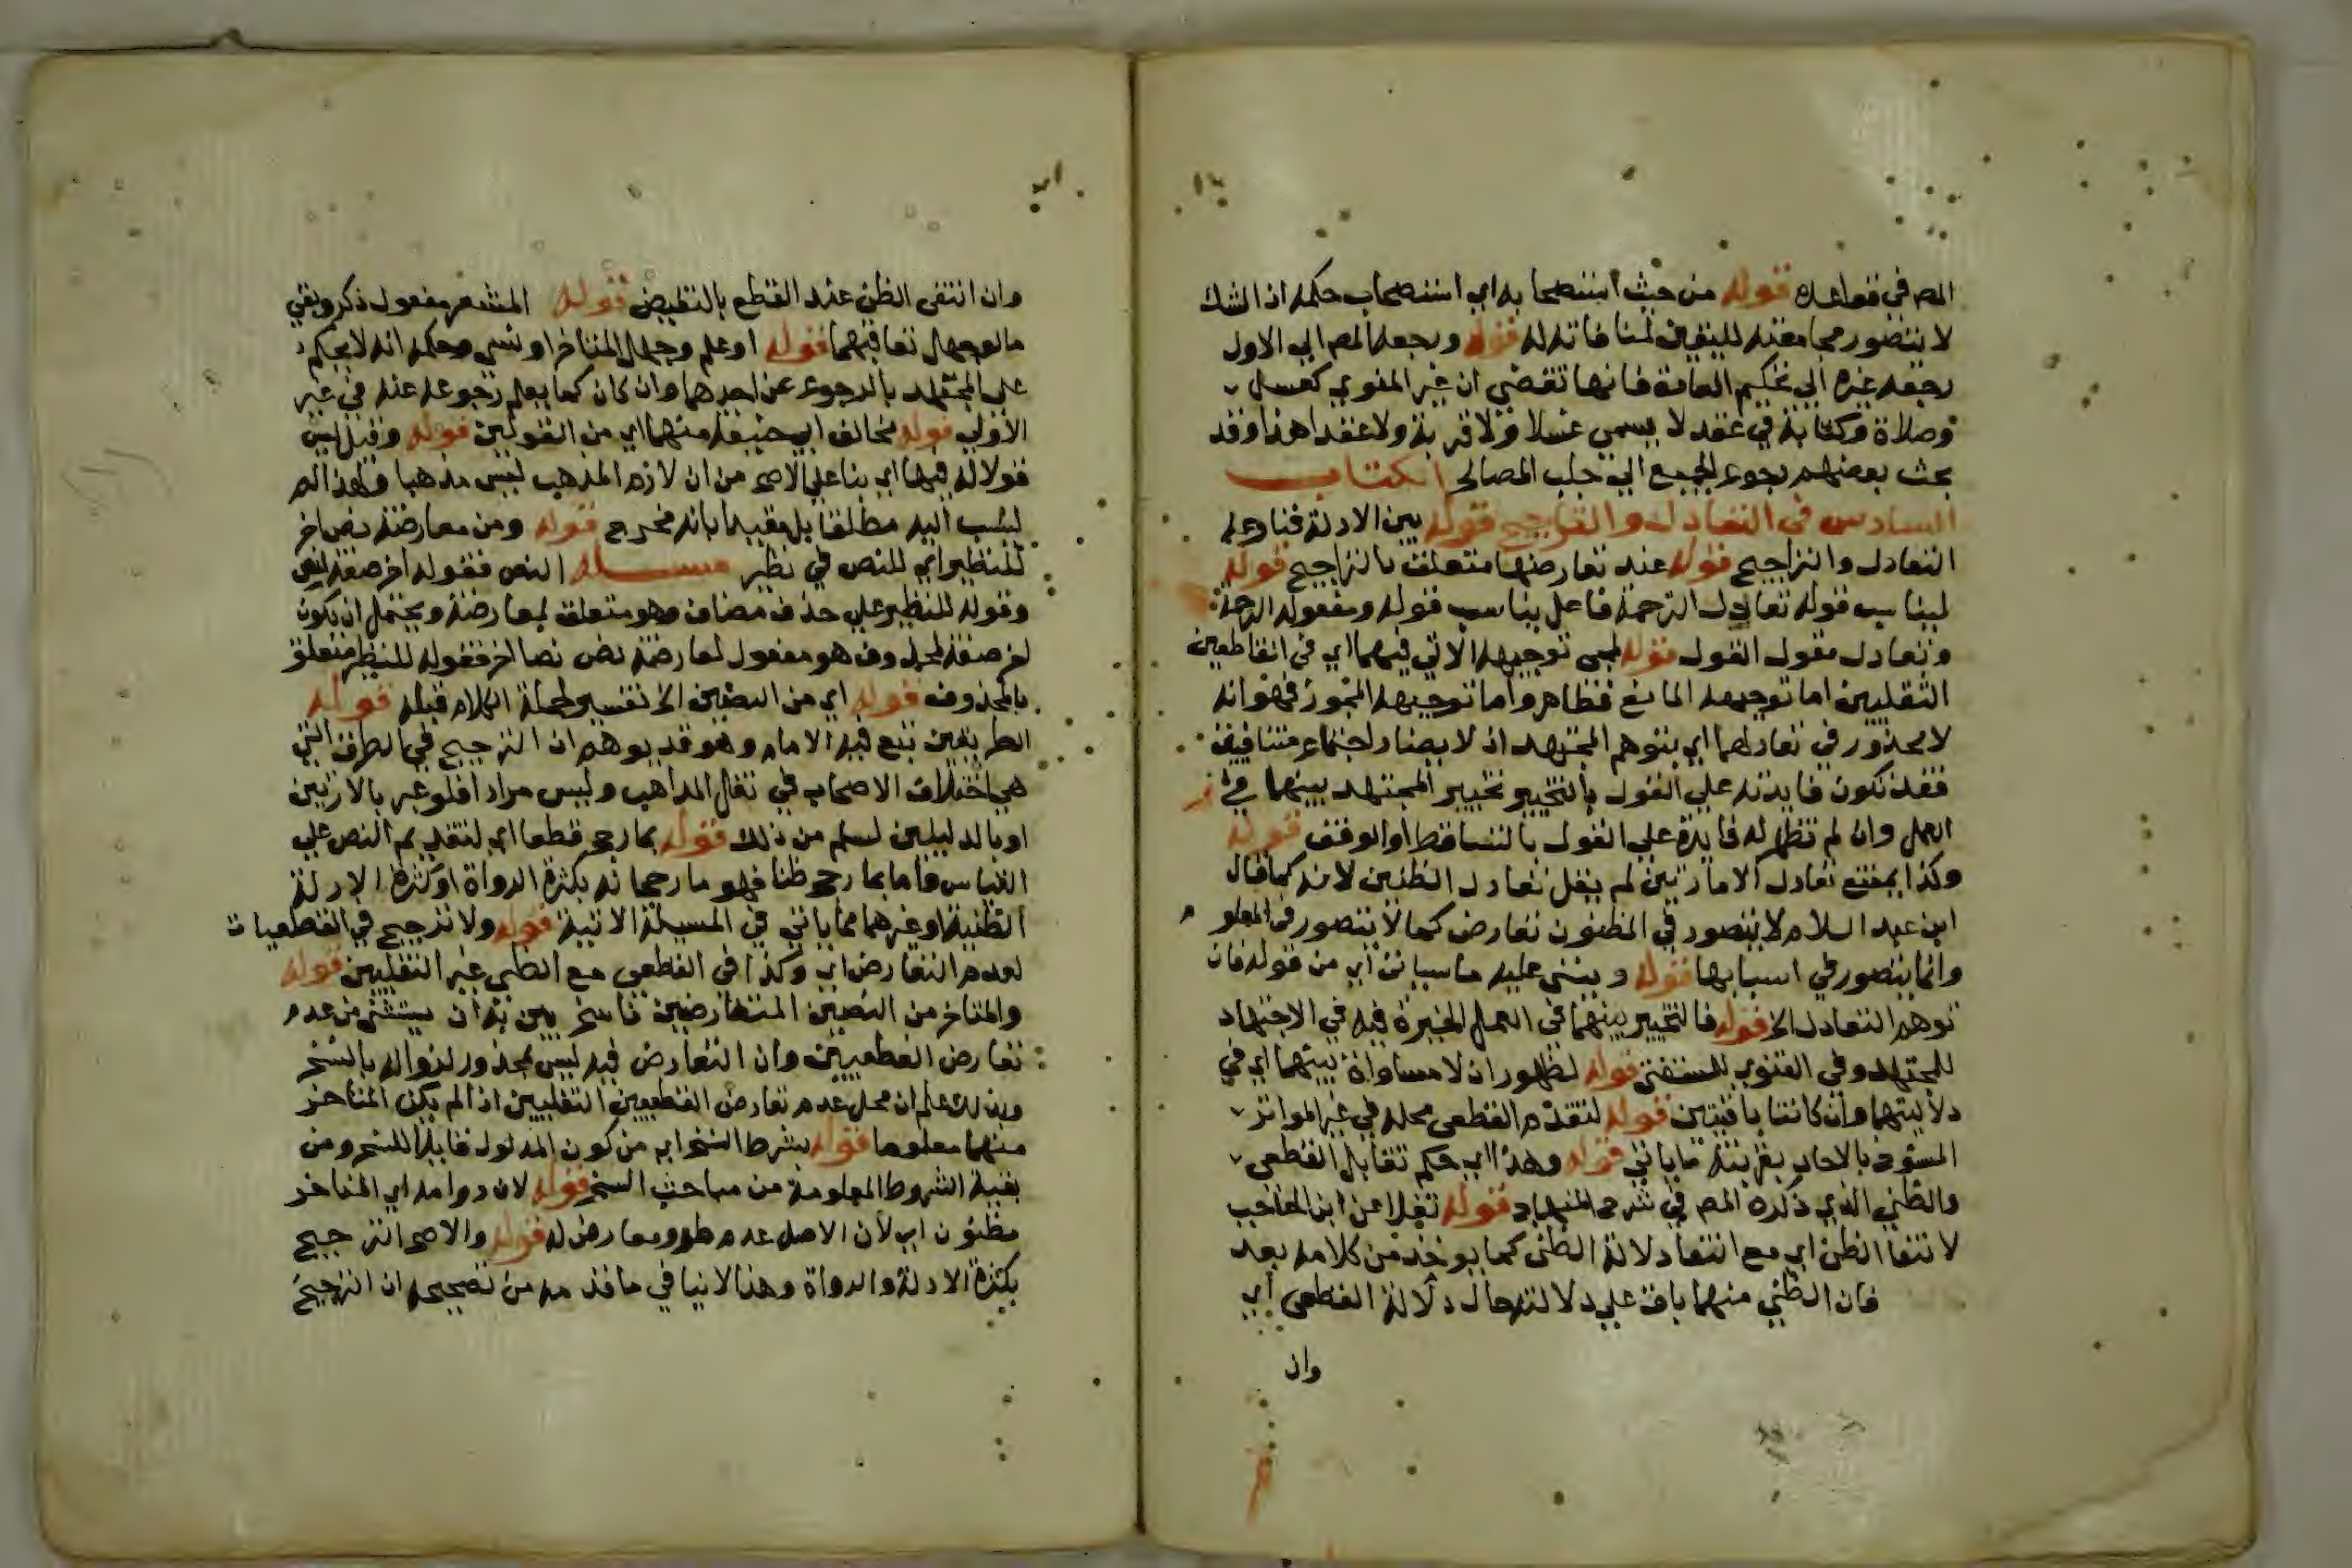 المص في قواعده قوله من حيث استصحابه اي استصحاب حكمه اذ الشك
لا يتصور مجامعته لليقين لمنافاته له قوله ورجعه المص الى الاول
رجعه غيره الي تحكيم العادة فانها تقضي ان غير المنوي كغسل
وصلاة وكتابة في عقد لا يسمي غسلا ولا قربة ولا عقدا هذا وقد
بحث بعضهم رجوع الجميع الي جلب المصالح الكتاب
السادس في التعادل والتراجيح قوله بين الادلة
التعادل والتراجيح قوله عند تعارضها متعلق بالتراجيح قوله
ليناسب قوله تعادل الترجمة فاعل يناسب قوله ومفعوله الترجمة
وتعادل مقول القول قوله لمجي توجيهه الاتي فيهما اي في القاطعين
النقليين اما توجيهه المانع فظاهر واما توجيهه المجوز فهو انه
لا محذور في تعادلهما اي بتوهم المجتهد اذ لا يصار لاجتماع متنافيين
فقد تكون فايدته علي القول بالتخيير تخيير المجتهد بينهما في
العمل وان لم تظهر له فايدة علي القول بالتساقط او الوقف قوله
وكذا يمتنع تعادل الامارتين لم يقل تعادل الظنين لانه كما قال
ابن عبد السلام لا يتصور في المظنون تعارض كما لا يتصور في المعلوم
وانما يتصور في اسبابها قوله وينبني عليه ما سياتي اي من قوله فان
توهم التعادل الخ قوله فالتخيير بينهما في العمل الخيرة فيه في الاجتهاد
للمجتهد وفي الفتوي للمستفتي قوله لظهور ان لا مساواة بينهما اي في
دلالتهما وان كانتا باقيتين قوله لتقدم القطعي محله في غير المتواتر
المنسوخ بالاحاد بقرينة ما ياتي قوله وهذا اي حكم تقابل القطعي
والظني الذي ذكره المص في شرح المنهاج قوله نقلا عن ابن الحاجب
لانتفا الظن اي مع انتفا دلالة الظني كما يوخذ من كلامه بعد
فان الظني منهما باق علي دلالته حال دلالة القطعي اي
وان
وان انتفى الظن عند القطع بالنقيض قوله المشعر مفعول ذكر وبقي
ما لو جهل تعاقبهما قوله او علم وجهل المتاخر او نسي وحكمه انه لا يحكم
علي المجتهد بالرجوع عن احدهما وان كان كما يعلم رجوعه عنه في غير
الاولي قوله مخالف ابي حنيفة منهما اي من القولين قوله وقيل ليس
قولا له فيها اي بنا علي الاصح من ان لازم المذهب ليس مذهبا ولهذا لم
ينسب اليه مطلقا بل مقيدا بانه مخرج قوله ومن معارضة نص اخر
للنظير اي للنص في نظير مسئلة النص فقوله اخر صفة لنص
وقوله للنظير علي حذف مضاف وهو متعلق بمعارضة ويحتمل ان يكون
اخر صفة لمحذوف هو مفعول لمعارضة نص نصا اخر فقوله للنظير متعلق
بالمحذوف قوله اي من النصين الخ تفسير لجملة الكلام قبله قوله
الطريقين تبع فيه الامام وهو قد يوهم ان الترجيح في الطرق التي
هي اختلاف الاصحاب في نقل المذاهب وليس مراد افلو عبر بالامارتين
او بالدليلين لسلم من ذلك قوله بما رجح قطعا اي لتقديم النص علي
القياس واما بما رجح ظنا فهو ما رجحانه بكثرة الرواة او كثرة الادلة
الظنية او غيرهما مما ياتي في المسيلة الاتية قوله ولا ترجيح في القطعيات
لعدم التعارض اي وكذا في القطعي مع الظني غير النقليين قوله
والمتاخر من النصين المتعارضين ناسخ بين به ان يستثني من عدم
تعارض القطعيين وان التعارض فيه ليس بمحذور لزواله بالنسخ
وبذلك علم ان محل عدم تعارض القطعيين النقليين اذا لم يكن المتاخر
منهما معلوما قوله بشرط النسخ اي من كون المدلول قابلا للنسخ ومن
بقية الشروط المعلومة من مباحث النسخ قوله لان دوامه اي المتاخر
مظنون اي لان الاصل عدم طرو معارض له قوله والاصح الترجيح
بكثرة الادلة والرواة وهذا لا ينافي ما قدمه من تصحيحه ان الترجيح